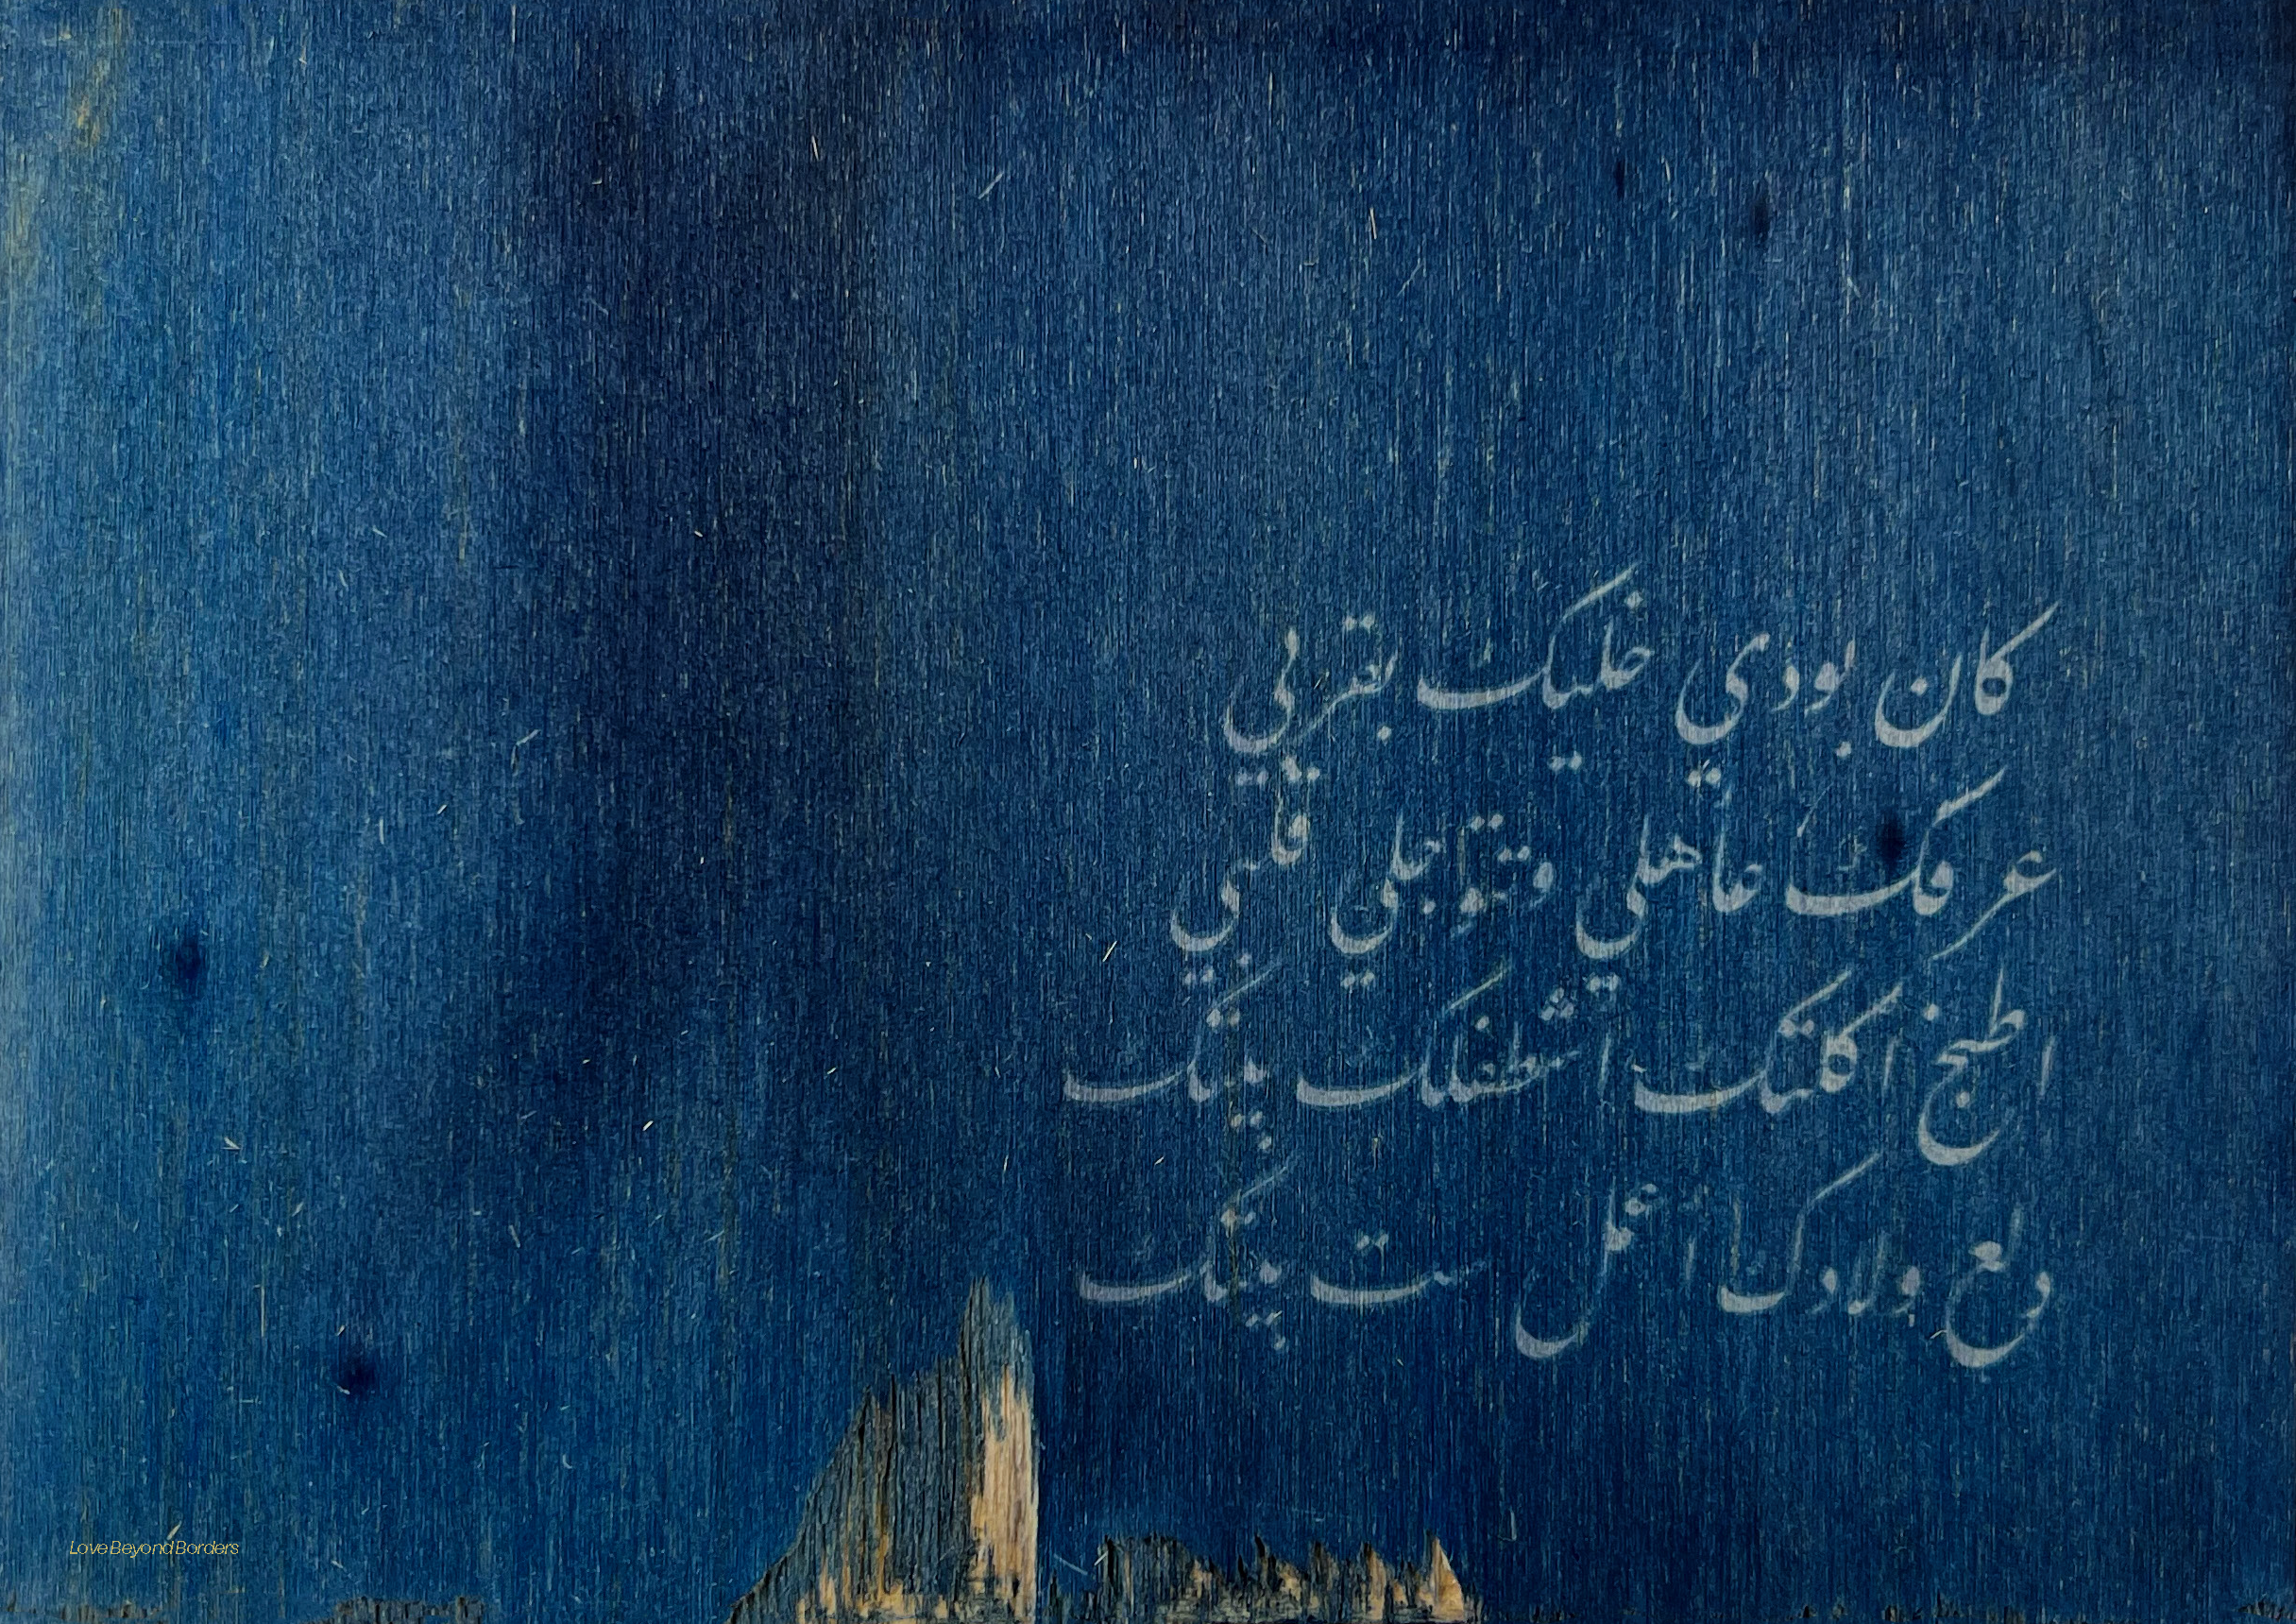 كان بودي خليك بقربي
عرفك عا هلي وتتوجلي قلبي
اطبخ اكلتيك اشطفلك بيتيك
دلع ولادك اعمل ست بيتيك
Love Beyond Borders